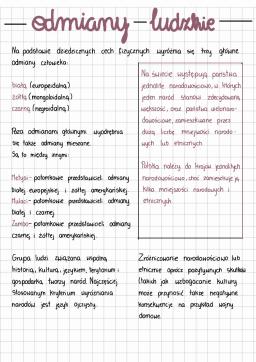 odmiany ludzkie
Na podstawie dziedzicznych cech fizycznych wyróżnia się trzy główne
odmiany człowieka:
białą (europeidalną)
żółtą (mongoloidalną)
czarną (negroidalną)
Poza odmianami głównymi wyodrębnia
się także odmiany mieszane.
Są to między innymi:
Metysi- potomkowie przedstawicieli odmiany
białej europejskiej i żółtej amerykańskiej.
Mulaci- potomkowie przedstawicieli odmiany
białej i czarnej.
Zambo- potomkowie przedstawicieli odmiany
czarnej i żółtej amerykańskiej.
Na świecie występują państwa
jednolite narodowościowo, w których
jeden naród stanowi zdecydowaną
większość, oraz państwa wielonaro-
dowościowe, zamieszkiwane przez
dużą liczbę mniejszości narodo-
wych lub etnicznych.
Polska należy do krajów jednolitych
narodowościowo, choć zamieszkuje ją
kilka mniejszości narodowych i
etnicznych
Grupa ludzi związana wspólną
historią, kulturą, językiem, terytorium i
gospodarką, tworzy naród. Najczęściej
stosowanym kryterium wyróżniania
narodów jest język ojczysty.
Zróżnicowanie narodowościowe lub
etniczne oprócz pozytywnych skutków
(takich jak wzbogacanie kultury)
może przynosić także negatywne
konsekwencje na przykład wojny
domowe.